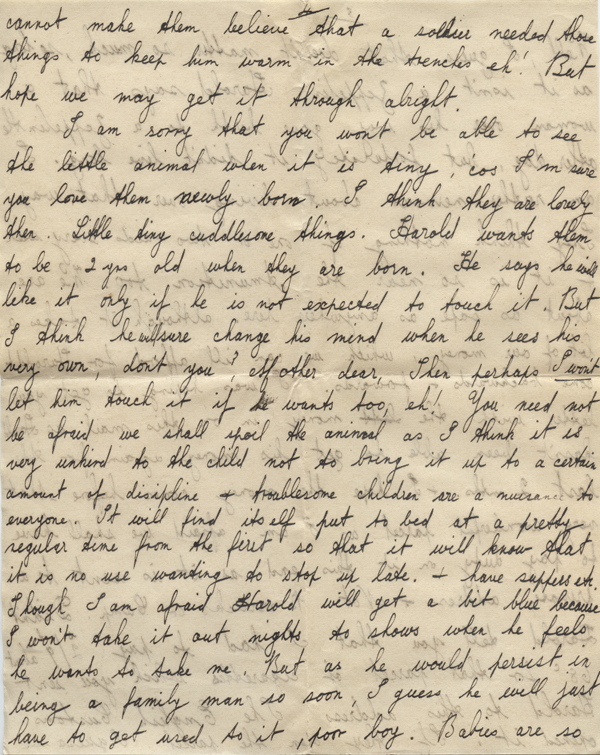 cannot make them believe that a soldier needed those
things to keep him warm in the trenches eh! But
hope we may get it through alright.
I am sorry that you won't be able to see
the little animal when it is tiny, 'cos I'm sure
you love them newly born. I think they are lovely
then. Little tiny cuddlesome things. Harold wants them
to be 2 yrs old when they are born. He says he will
like it only if he is not expected to touch it. But
I think he will sure change his mind when he sees his
very own, don't you? other dear, Then perhaps I won't
let him touch it if he wants too, eh! You need not
be afraid we shall spoil the animal as I think it is
very unkind to the child not to bring it up to a certain
amount of disipline + troublesome children are a nuisance to
everyone. It will find itself put to bed at a pretty
regular time from the first so that it will know that
it is no use wanting to stop up late. + have suppers etc.
Though I am afraid Harold will get a bit blue because
I won't take it out nights to shows when he feels
he wants to take me. But as he would persist in
being a family man so soon, I guess he will just
have to get used to it, poor boy. Babies are so